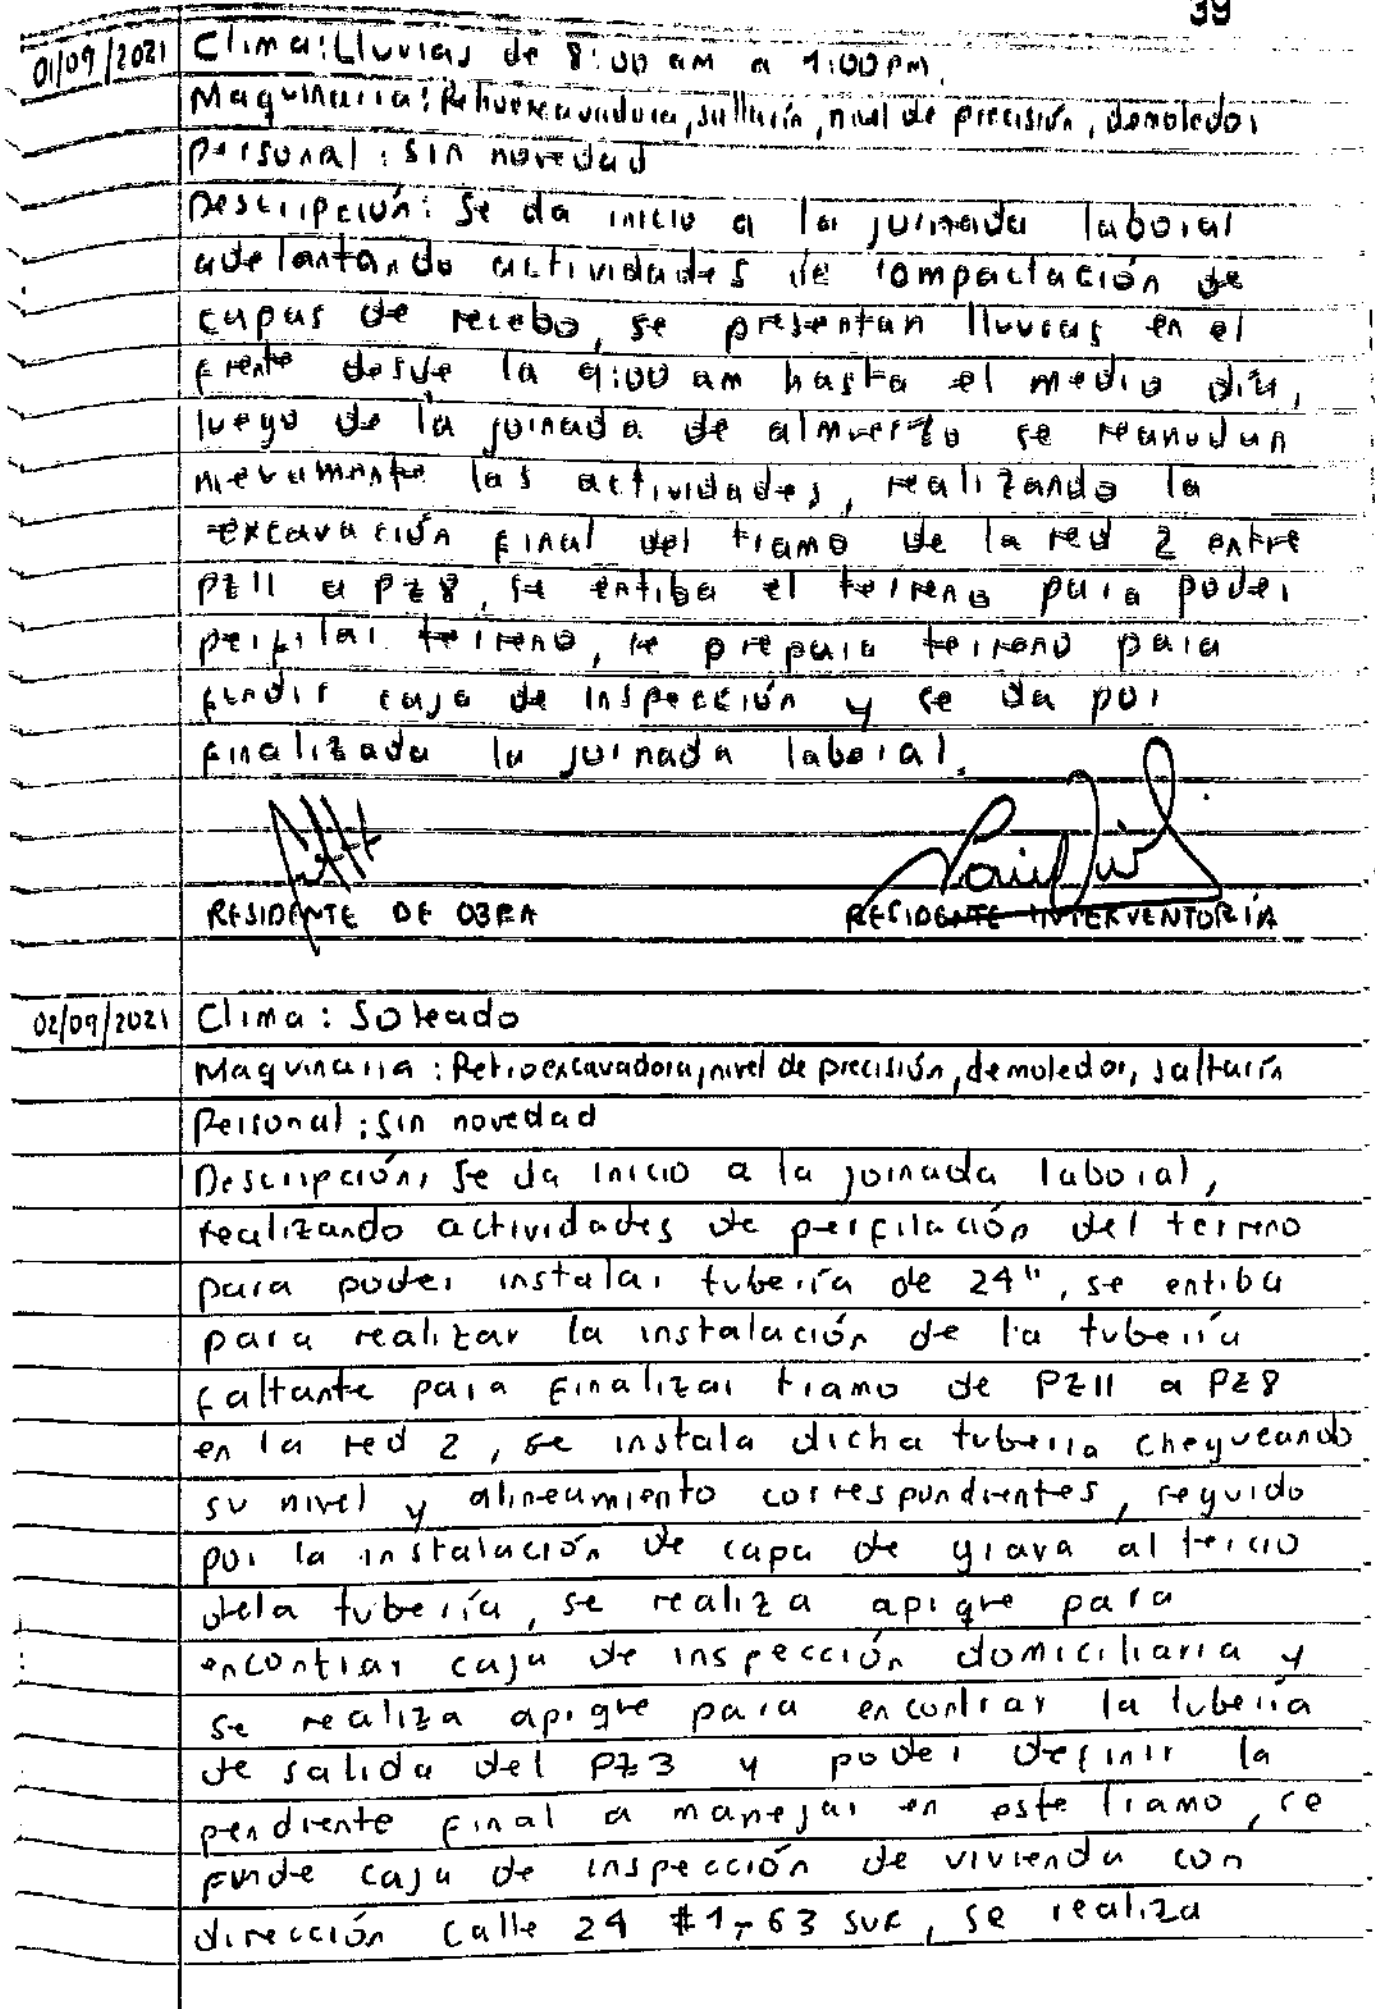 39
01/09/2021 Clima: Lluvias de 8:00 am a 1:00 pm.
Maquinaria: Retroexcavadora, saltarín, nivel de precisión, demoledor
Personal: sin novedad
Descripción: Se da inicio a la jornada laboral
adelantando actividades de compactación de
capas de recebo, se presentan lluvias en el
frente desde la 9:00 am hasta el medio día,
luego de la jornada de almuerzo se reanudan
nuevamente las actividades, realizando la
excavación final del tramo de la red 2 entre
PZ11 a PZ8, se entiba el terreno para poder
perfilar terreno, se prepara terreno para
fundir caja de inspección y se da por
finalizada la jornada laboral.
RESIDENTE DE OBRA RESIDENTE INTERVENTORÍA
02/09/2021 Clima: Soleado
Maquinaria: Retroexcavadora, nivel de precisión, demoledor, saltarín
Personal: sin novedad
Descripción, Se da inicio a la jornada laboral,
realizando actividades de perfilación del terreno
para poder instalar tubería de 24", se entiba
para realizar la instalación de la tubería
faltante para finalizar tramo de PZ11 a PZ8
en la red 2, se instala dicha tubería chequeando
su nivel y alineamiento correspondientes, seguido
por la instalación de capa de grava al tercio
dela tubería, se realiza apique para
encontrar caja de inspección domiciliaria y
se realiza apique para encontrar la tubería
de salida del PZ3 y poder definir la
pendiente final a manejar en este tramo, se
funde caja de inspección de vivienda con
dirección Calle 24 #1-63 sur, se realiza